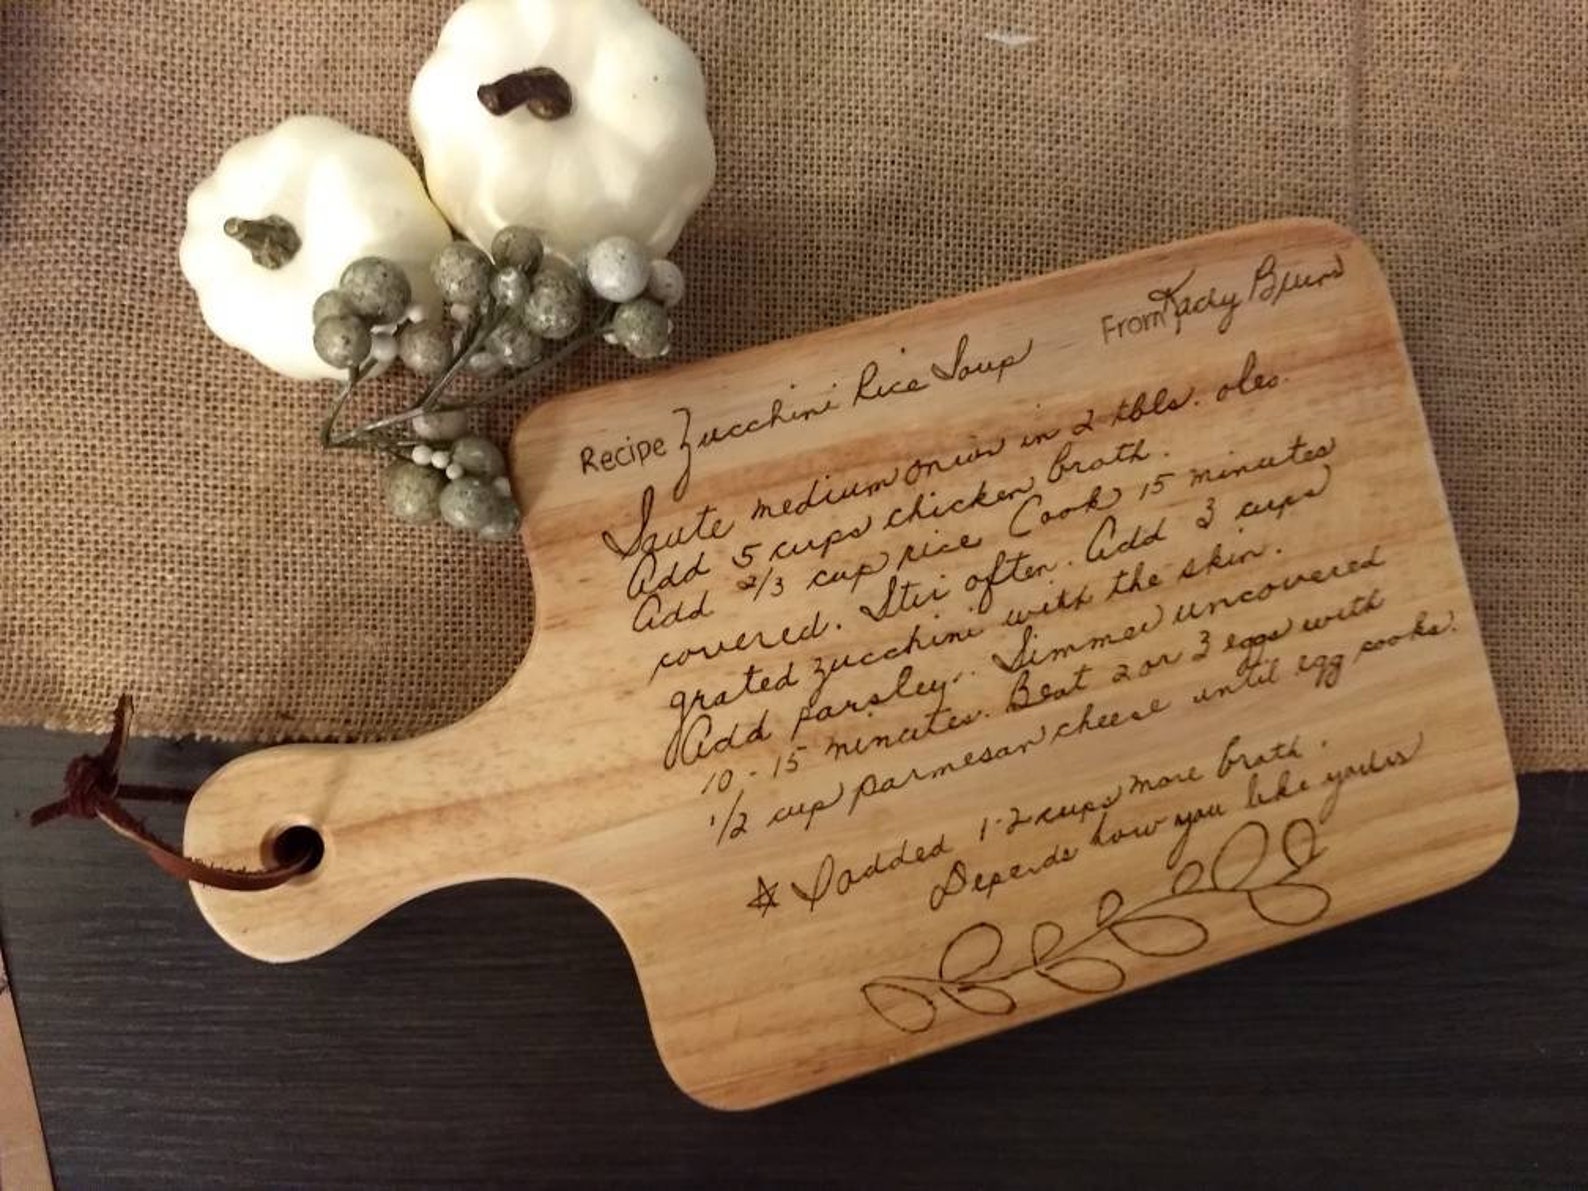 Recipe Zucchini Rice Soup From Kady
Saute medium onion in 2 tbls. oleo.
Add 5 cups chicken broth.
Add 2/3 cup rice Cook 15 minutes
covered. Stir often. Add 3 cups
grated zucchini with the skin.
Add parsley.. Simmer uncovered
10-15 minutes. Beat 2 or 3 eggs with
1/2 cup parmesan cheese until egg cooks.
☆ I added 1-2 cups more broth.
Depends how you like yours